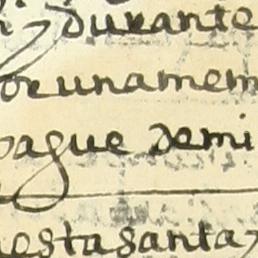 durante
orunamem
pague demi
estasanta